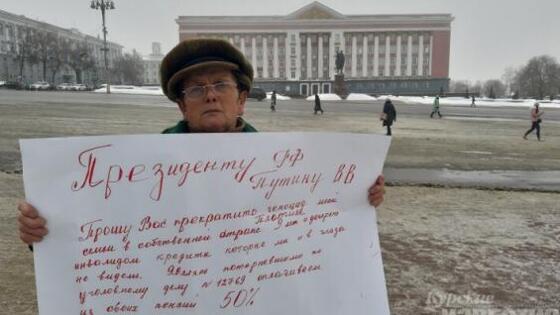 Президенту РФ
Путину ВВ
Прошу Вас прекратить геноцид моей
семьи в собственной стране. Платим
инвалидом кредиты которые мы и в глаза
не видели. Являюсь потерпевшими по
уголовному делу № 12769 оплачиваем
из своих пенсий 50%
Курские
ИЗВЕСТИЯ